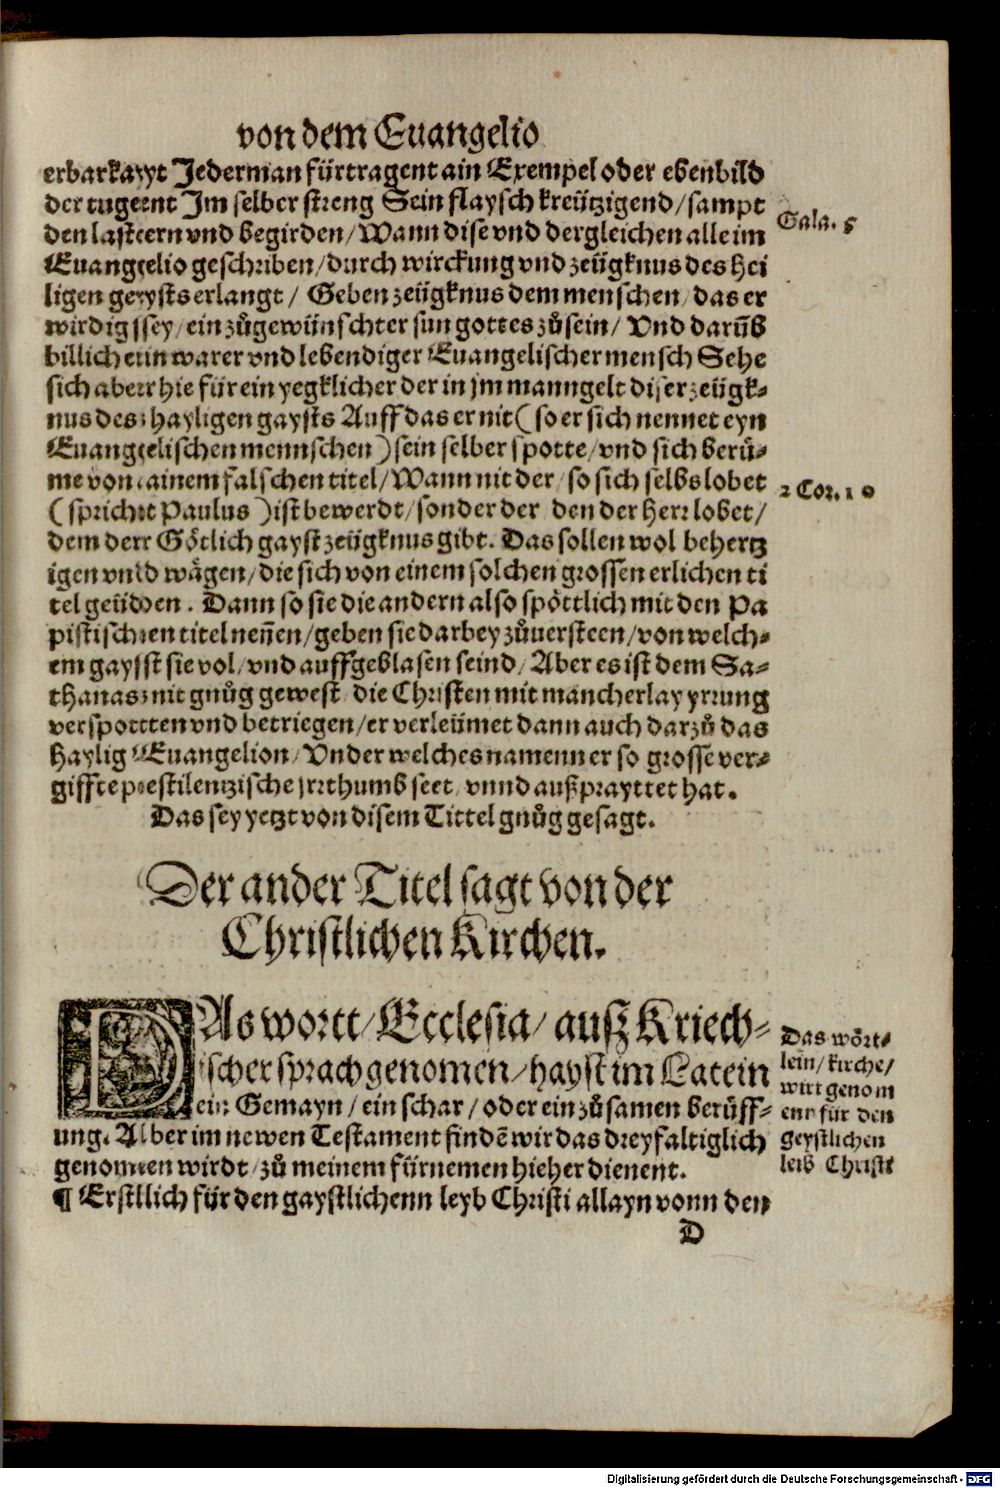 von dem Euangelio
erbarkayt Jederman fürtragent ain Exempel oder ebenbild
der tugent Im selber streng Sein flaysch kreützigend/ sampt
den lastern vnd begirden/ Wann dise vnd dergleichen alle im
Gala. 5
Euangelio geschriben/ durch wirckung vnd zeügknus des hei
ligen geysts erlangt/ Geben zeügknus dem menschen/ das er
wirdig sey/ ein zůgewünschter sun gottes zů sein/ Vnd darüb
billich ein warer vnd lebendiger Euangelischer mensch Sehe
sich aber hie für ein yegklicher der in jm manngelt diser zeügk⸗
nus des hayligen gaysts Auff das er nit ( so er sich nennet eyn
Euangelischen mennschen ) sein selber spotte/ vnd sich berü⸗
me von ainem falschen titel/ Wann nit der/ so sich selbs lobet
2 Cor. 10
( spricht Paulus ) ist bewerdt/ sonder der den der Herr lobet/
dem derr Götlich gayst zeügknus gibt. Das sollen wol behertz
igen vnnd wägen/ die sich von einem solchen grossen erlichen ti
tel geüden. Dann so sie die andern also spöttlich mit den Pa
pistischen titel neñen/ geben sie darbey zůuersteen/ von welch⸗
em gayst sie vol/ vnd auffgeblasen seind/ Aber es ist dem Sa⸗
thanas nit gnůg gewest/ die Christen mit mancherlay yrrung
verspotten vnd betriegen/ er verleümet dann auch darzů das
haylig Euangelion/ Vnder welches namenn er so grosse ver⸗
giffte pestilentzische jrrthumb seet/ vnnd außprayttet hat.
Das sey yetzt von disem Tittel gnůg gesagt.
Der ander Titel sagt von der
Christlichen Kirchen.
DAs wortt/ Ecclesia/ ausz Kriech⸗
ischer sprach genomen/ hayst im Latein
ein Gemayn/ ein schar/ oder ein zůsamen berüff⸗
ung. Aber im newen Testament findẽ wir das dreyfaltiglich
genomen wirdt/ zů meinem fürnemen hieher dienent.
¶ Erstlich für den gaystlichenn leyb Christi allayn vonn den
Das wört⸗
lein/ kirche/
wirt genom
enn für den
geystlichen
leib Christi
D
Digitalisierung gefördert durch die Deutsche Forschungsgemeinschaft - DFG